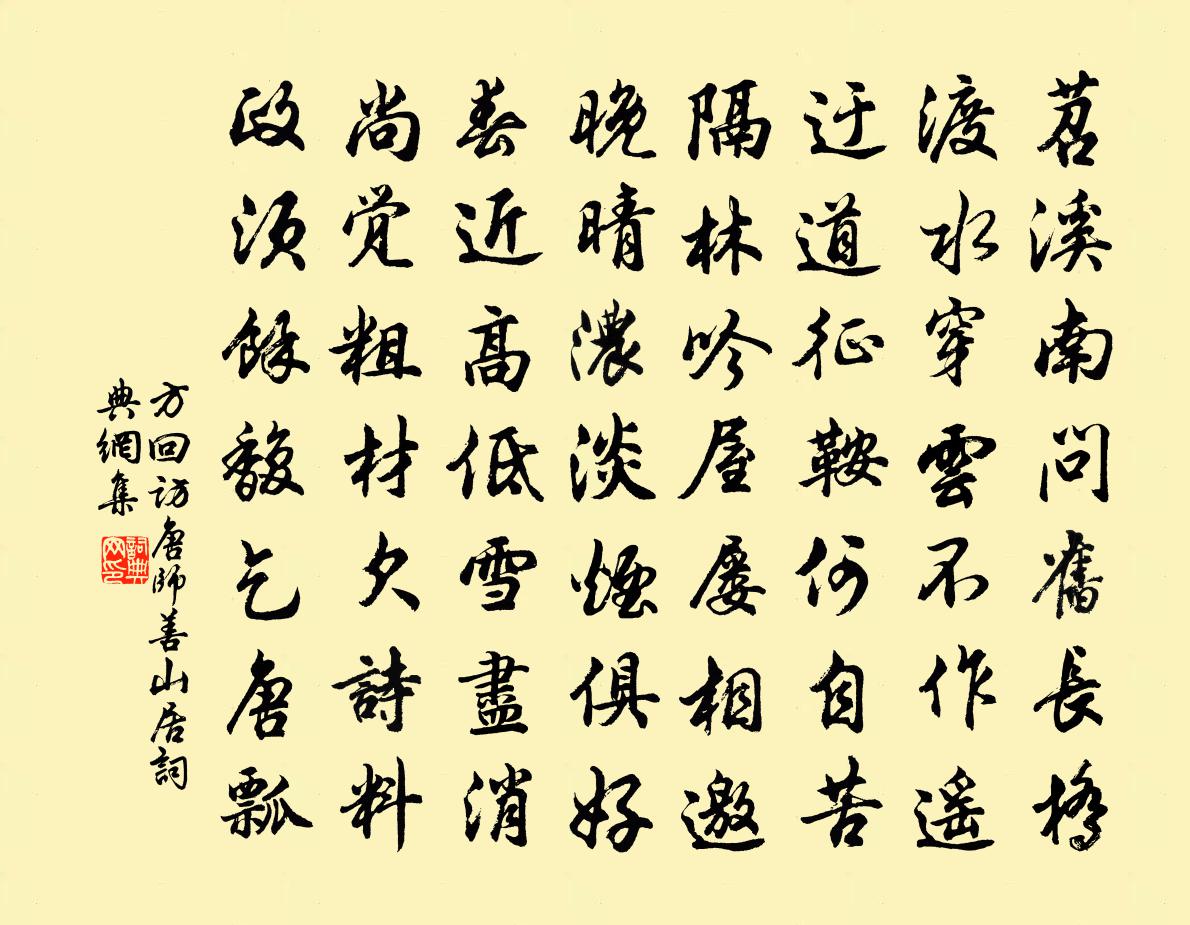 苕溪南問舊長橋
渡水穿雲不作遥
迂道征鞍何自苦
隔林吟屋屡相邀
晚晴濃淡煙俱好
春近高低雪盡消
尚覚粗材欠詩料
政須餘馥乞唐瓢
方回訪唐師善山居詞
典網集
詞典
网印